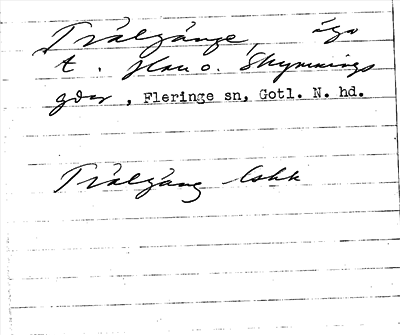 Trälgänge, ägo
t. Hau o. Skymnings
gdar, Fleringe sn, Gotl. N. hd.
Trälgäng